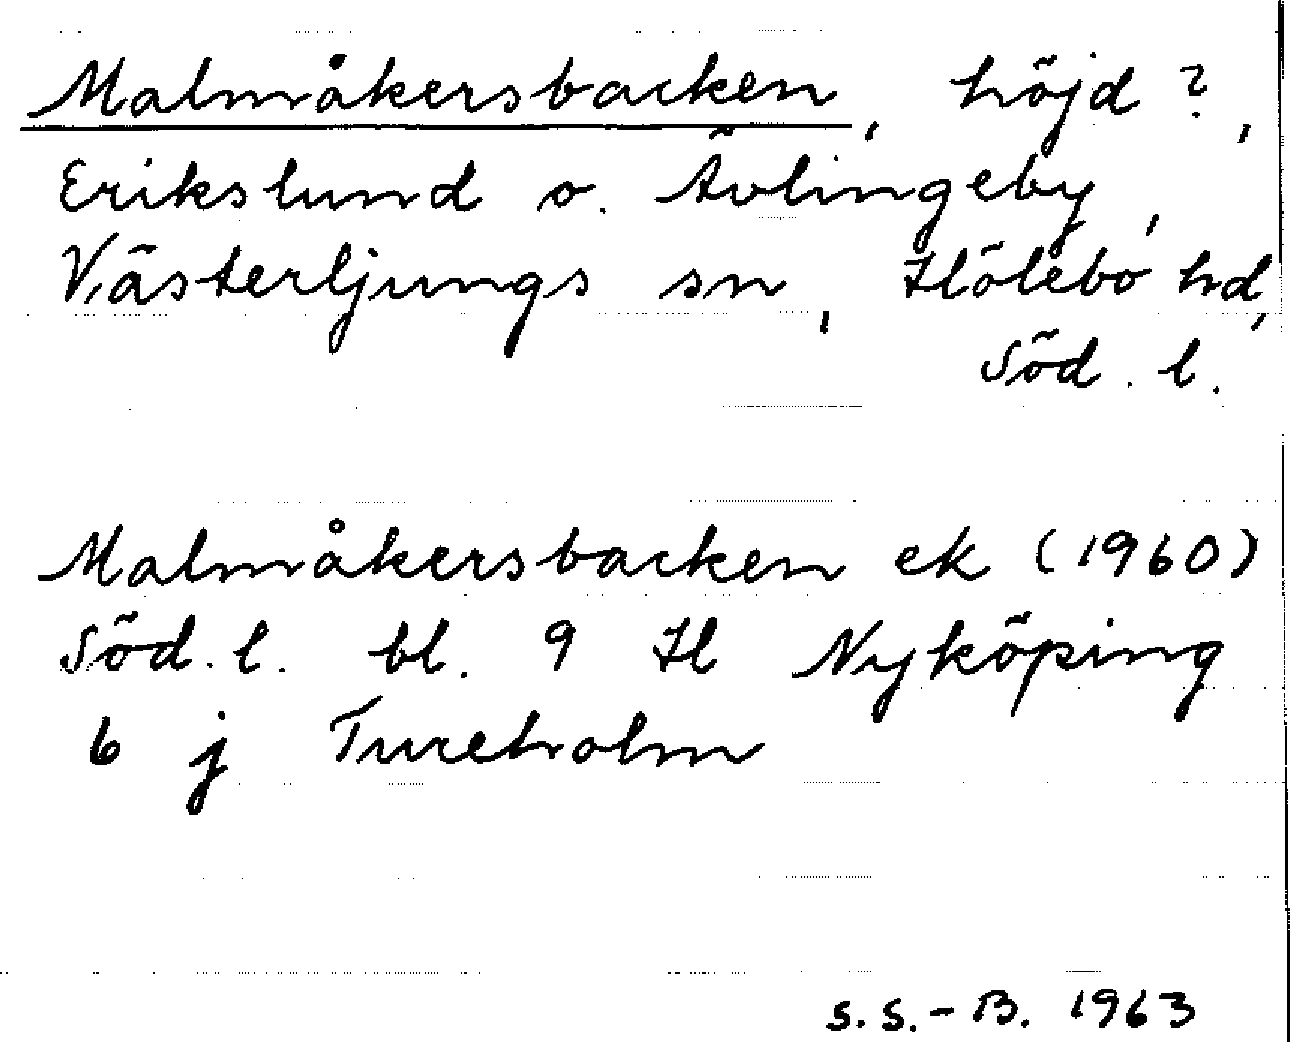 Malmåkersbacken, höjd?,
Erikslund o. Ävlingeby,
Västerljungs sn, Hölebo hd,
Söd. l.
Malmåkersbacken ek (1960)
Söd. l. bl. 9 H Nyköping
6 j Tureholm
S.S.-B. 1963